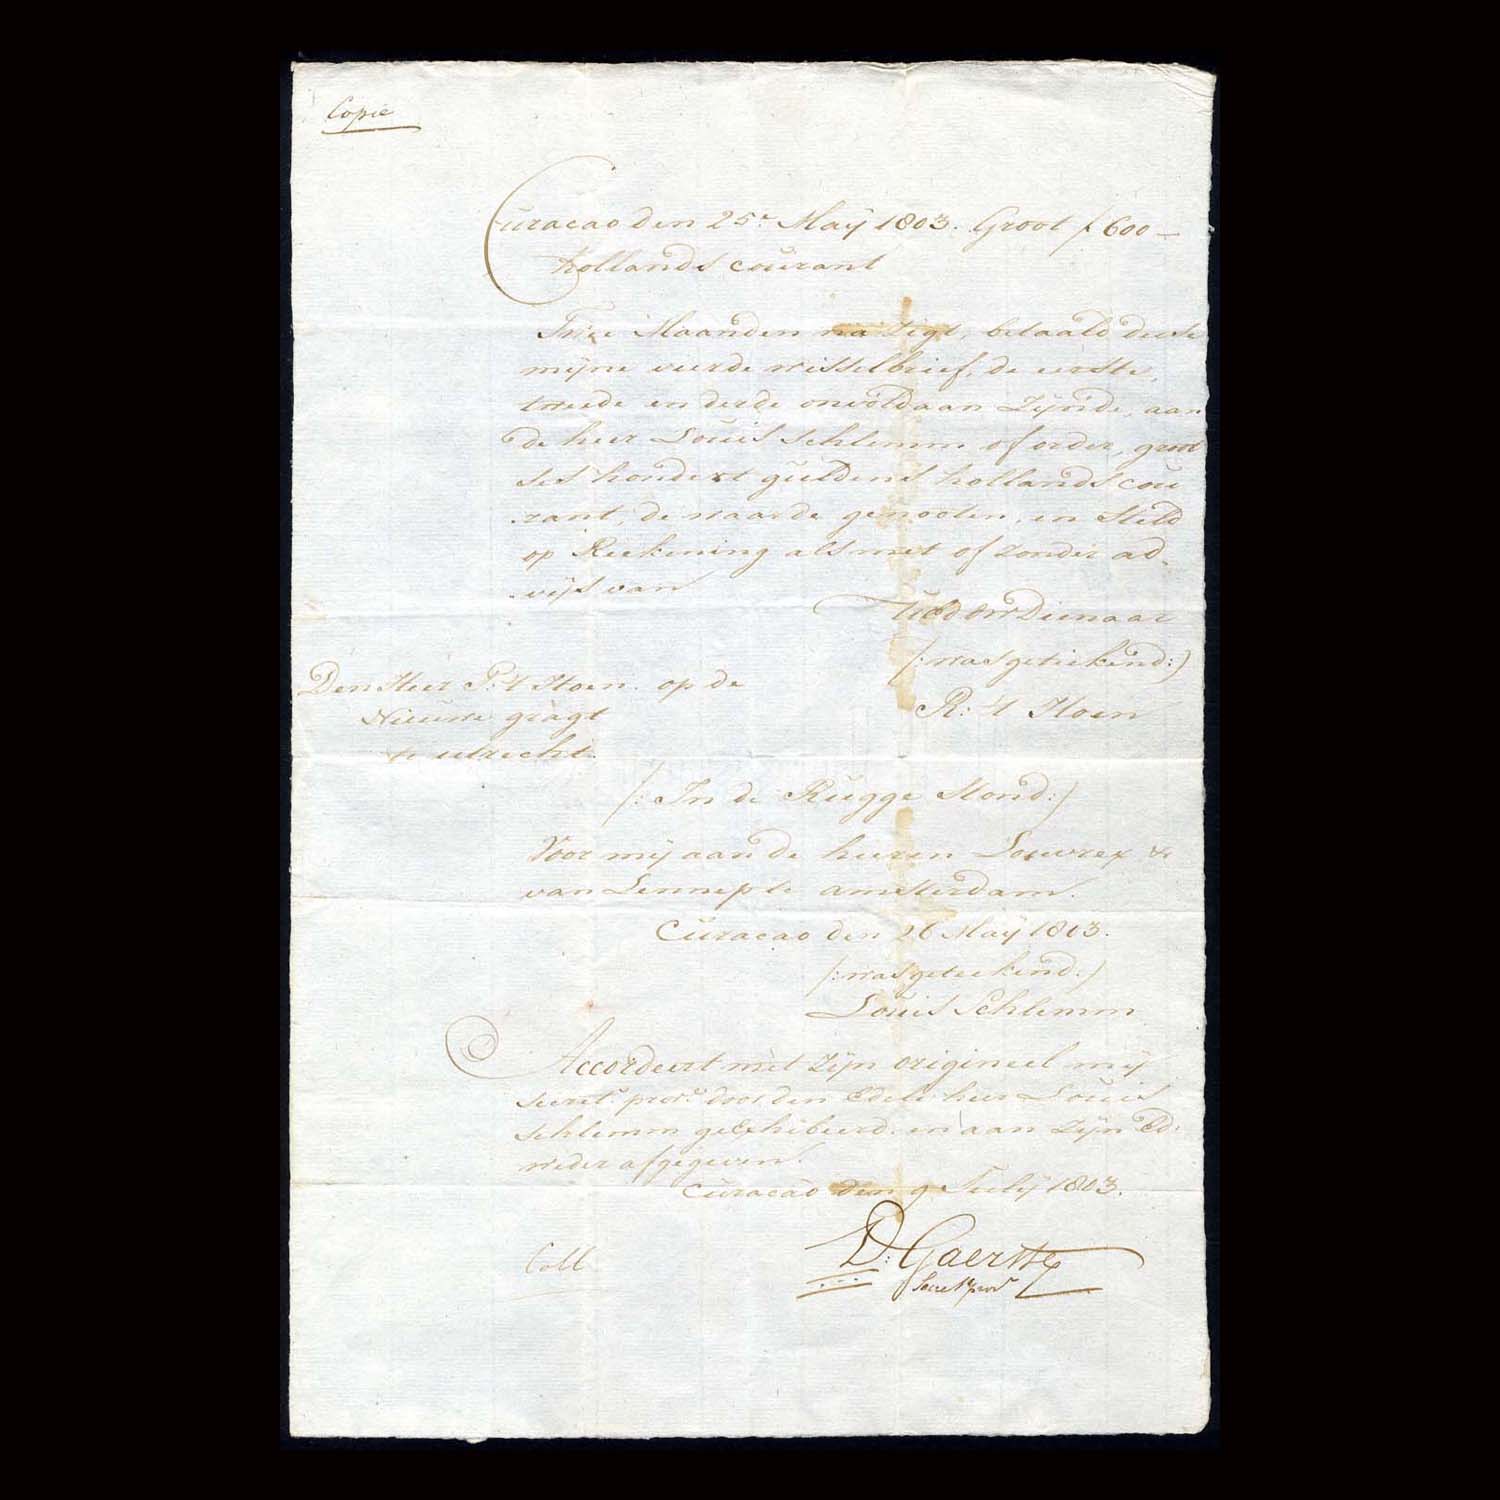 Copie
Curacao den 25e. Maÿ 1803. Groot ƒ 600 —
hollands courant
Twee Maanden na Zigt, betaald deese
mijne vierde wisselbrief, de eerste,
tweede en derde onvoldaan Zÿnde, aan
de heer Louis Schlemm of order, groot
ses hondert guldens hollands cou
rant, de waarde genooten, en Steld
op Reekening als met of zonder ad-
vijs van
UEd DW Dienaar
/:was geteekend:/
Den Heer P: 't Hoen op de
R: 't Hoen
Nieuwe gragt
te utrecht.
/: In de Rugge Stond:/
Voor mij aan de heeren Louvrex &
van Lennep te amsterdam.
Curacao den 26 Maÿ 1803.
/:was geteekend:/
Louis Schlemm
Accordeert met zijn origineel mij
secret. prov. door den Edele heer Louis
Schlemm geëxhibeerd. en aan Zijn Ed:
weder afgegeven.
Curacao den 9 Julÿ 1803.
D: Gaerste
Coll
Secret prov